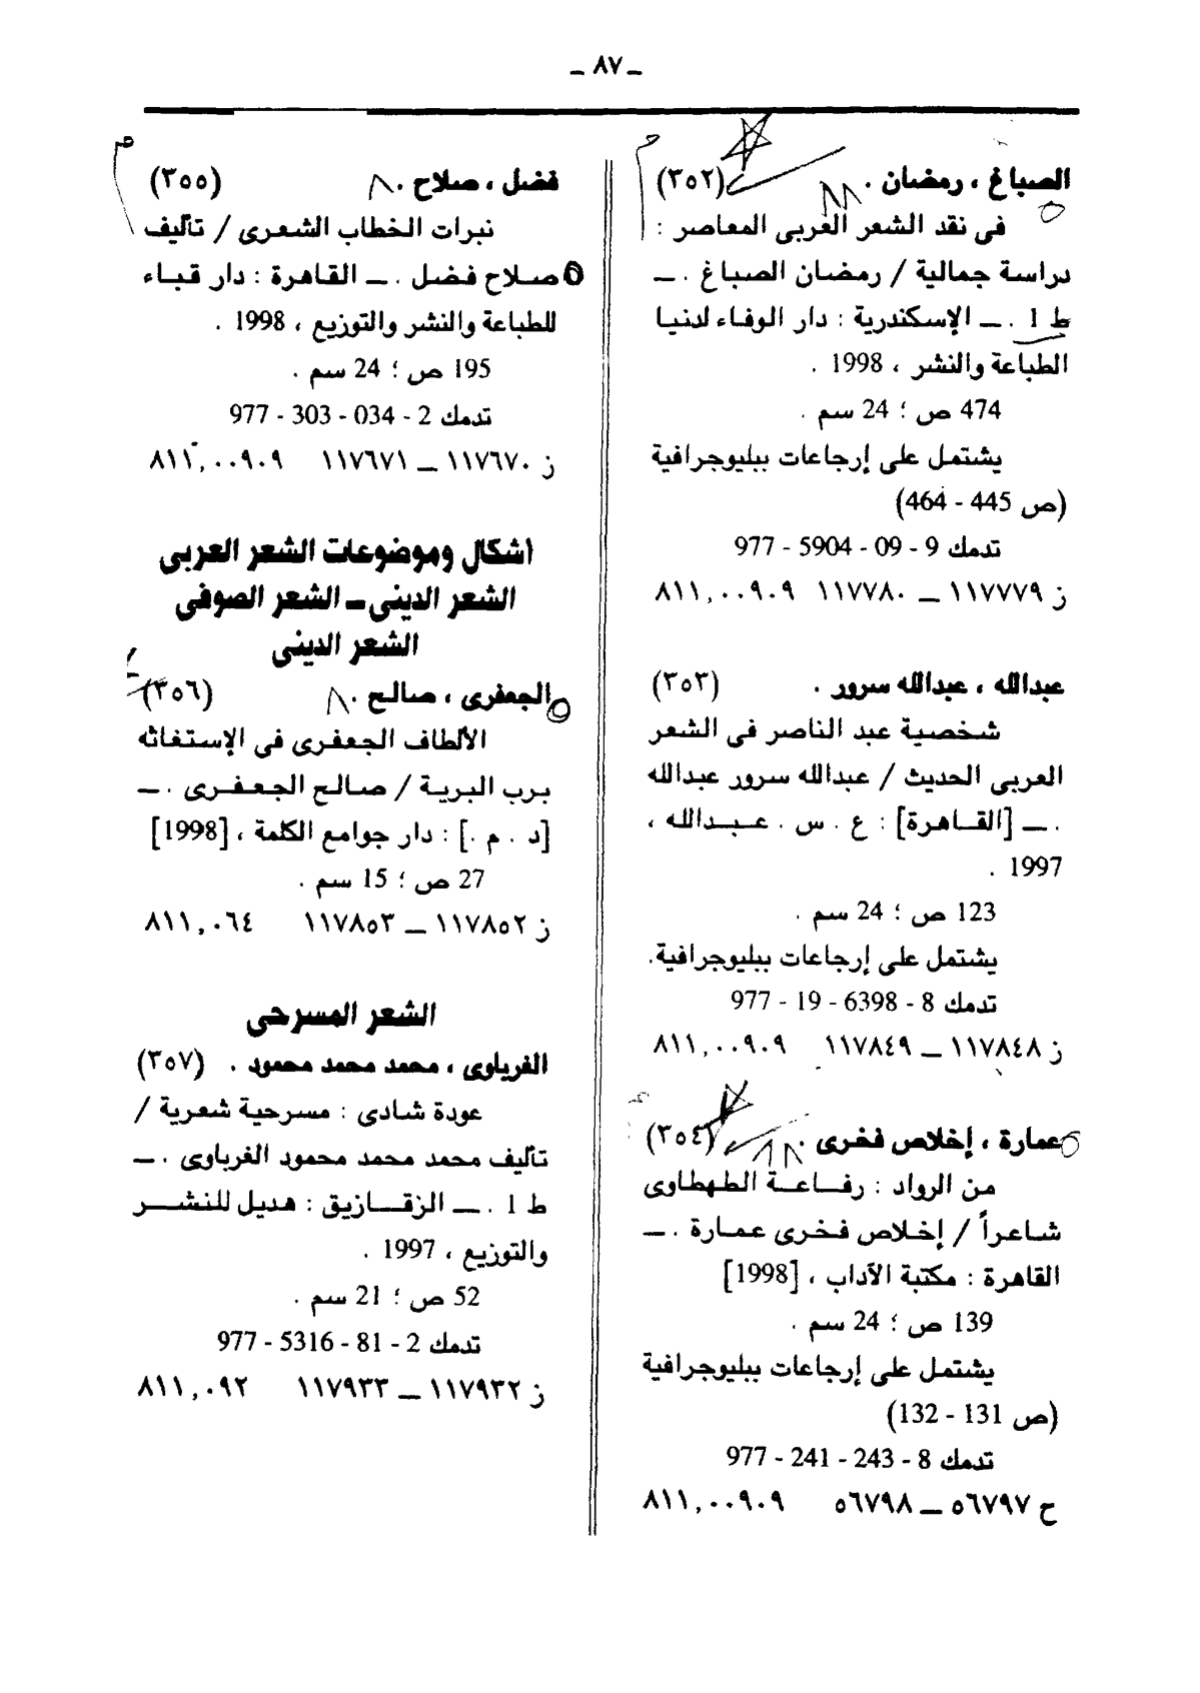 ـ ٨٧ ـ
الصباغ ، رمضان . (٣٥٢)
فى نقد الشعر العربى المعاصر :
دراسة جمالية / رمضان الصباغ . ـ
ط 1 . ـ الإسكندرية : دار الوفاء لدنيا
الطباعة والنشر ، 1998 .
474 ص ؛ 24 سم .
يشتمل على إرجاعات ببليوجرافية
(ص 445 - 464)
تدمك 9 - 09 - 5904 - 977
ز ١١٧٧٧٩ ـ ١١٧٧٨٠ ٨١١,٠٠٩٠٩
عبدالله ، عبدالله سرور . (٣٥٣)
شخصية عبد الناصر فى الشعر
العربى الحديث / عبدالله سرور عبدالله
. ـ [القاهرة] : ع . س . عبدالله ،
1997 .
123 ص ؛ 24 سم .
يشتمل على إرجاعات ببليوجرافية.
تدمك 8 - 6398 - 19 - 977
ز ١١٧٨٤٨ ـ ١١٧٨٤٩ ٨١١,٠٠٩٠٩
عمارة ، إخلاص فخرى . (٣٥٤)
من الرواد : رفاعة الطهطاوى
شاعراً / إخلاص فخرى عمارة . ـ
القاهرة : مكتبة الآداب ، [1998]
139 ص ؛ 24 سم .
يشتمل على إرجاعات ببليوجرافية
(ص 131 - 132)
تدمك 8 - 243 - 241 - 977
ح ٥٦٧٩٧ ـ ٥٦٧٩٨ ٨١١,٠٠٩٠٩
فضل ، صلاح . (٣٥٥)
نبرات الخطاب الشعرى / تأليف
صلاح فضل . ـ القاهرة : دار قباء
للطباعة والنشر والتوزيع ، 1998 .
195 ص ؛ 24 سم .
تدمك 2 - 034 - 303 - 977
ز ١١٧٦٧٠ ـ ١١٧٦٧١ ٨١١,٠٠٩٠٩
أشكال وموضوعات الشعر العربى
الشعر الدينى ـ الشعر الصوفى
الشعر الدينى
الجعفرى ، صالح . (٣٥٦)
الألطاف الجعفرى فى الإستغاثه
برب البرية / صالح الجعفرى . ـ
[د . م .] : دار جوامع الكلمة ، [1998]
27 ص ؛ 15 سم .
ز ١١٧٨٥٢ ـ ١١٧٨٥٣ ٨١١,٠٦٤
الشعر المسرحى
الغرباوى ، محمد محمد محمود . (٣٥٧)
عودة شادى : مسرحية شعرية /
تأليف محمد محمد محمود الغرباوى . ـ
ط 1 . ـ الزقازيق : هديل للنشر
والتوزيع ، 1997 .
52 ص ؛ 21 سم .
تدمك 2 - 81 - 5316 - 977
ز ١١٧٩٣٢ ـ ١١٧٩٣٣ ٨١١,٠٩٢